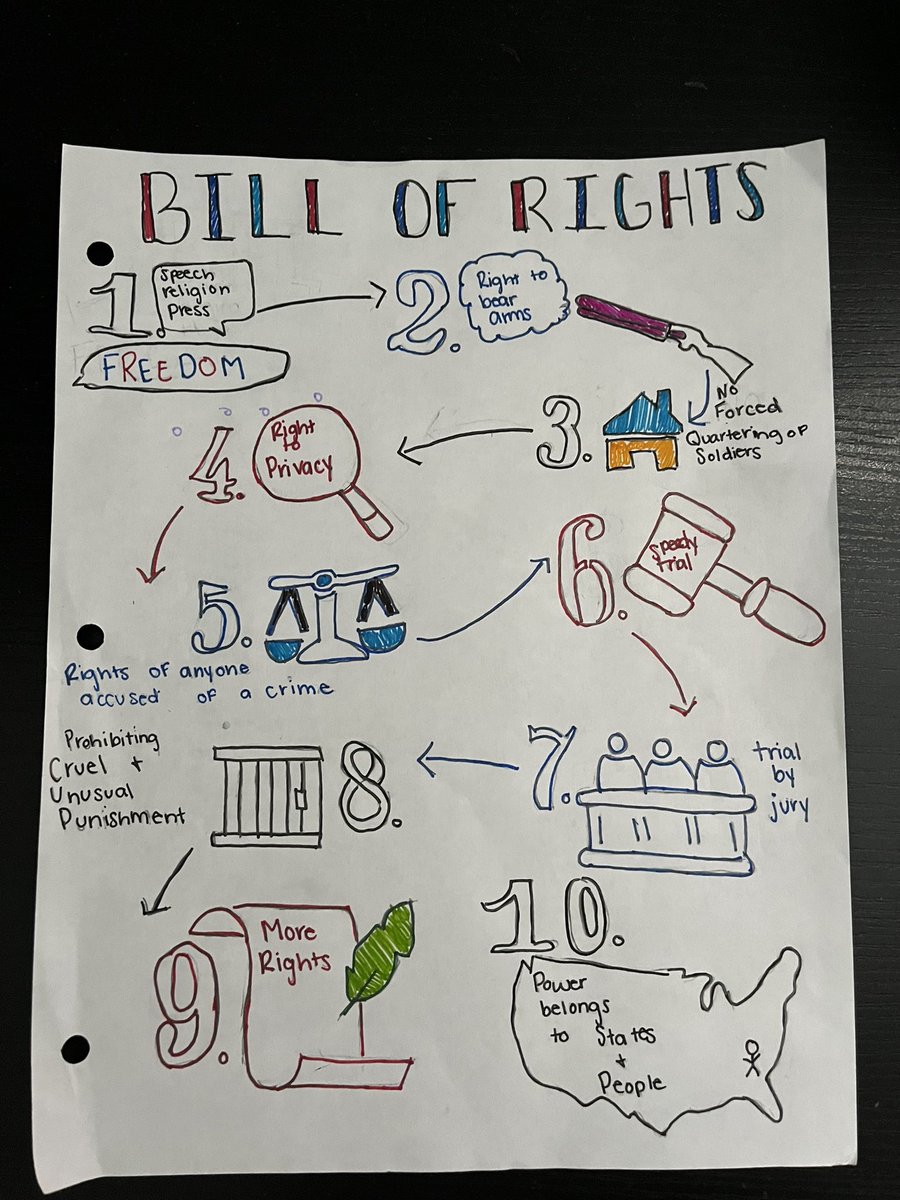 BILL OF RIGHTS
1.
Speech
religion
Press
FREEDOM
2.
Right to
bear
arms
3.
No
Forced
Quartering of
Soldiers
4.
Right
to
Privacy
5.
Rights of anyone
accused of a crime
6.
Speedy
trial
7.
trial
by
jury
8.
Prohibiting
Cruel +
Unusual
Punishment
9.
More
Rights
10.
Power
belongs
to States
+
People